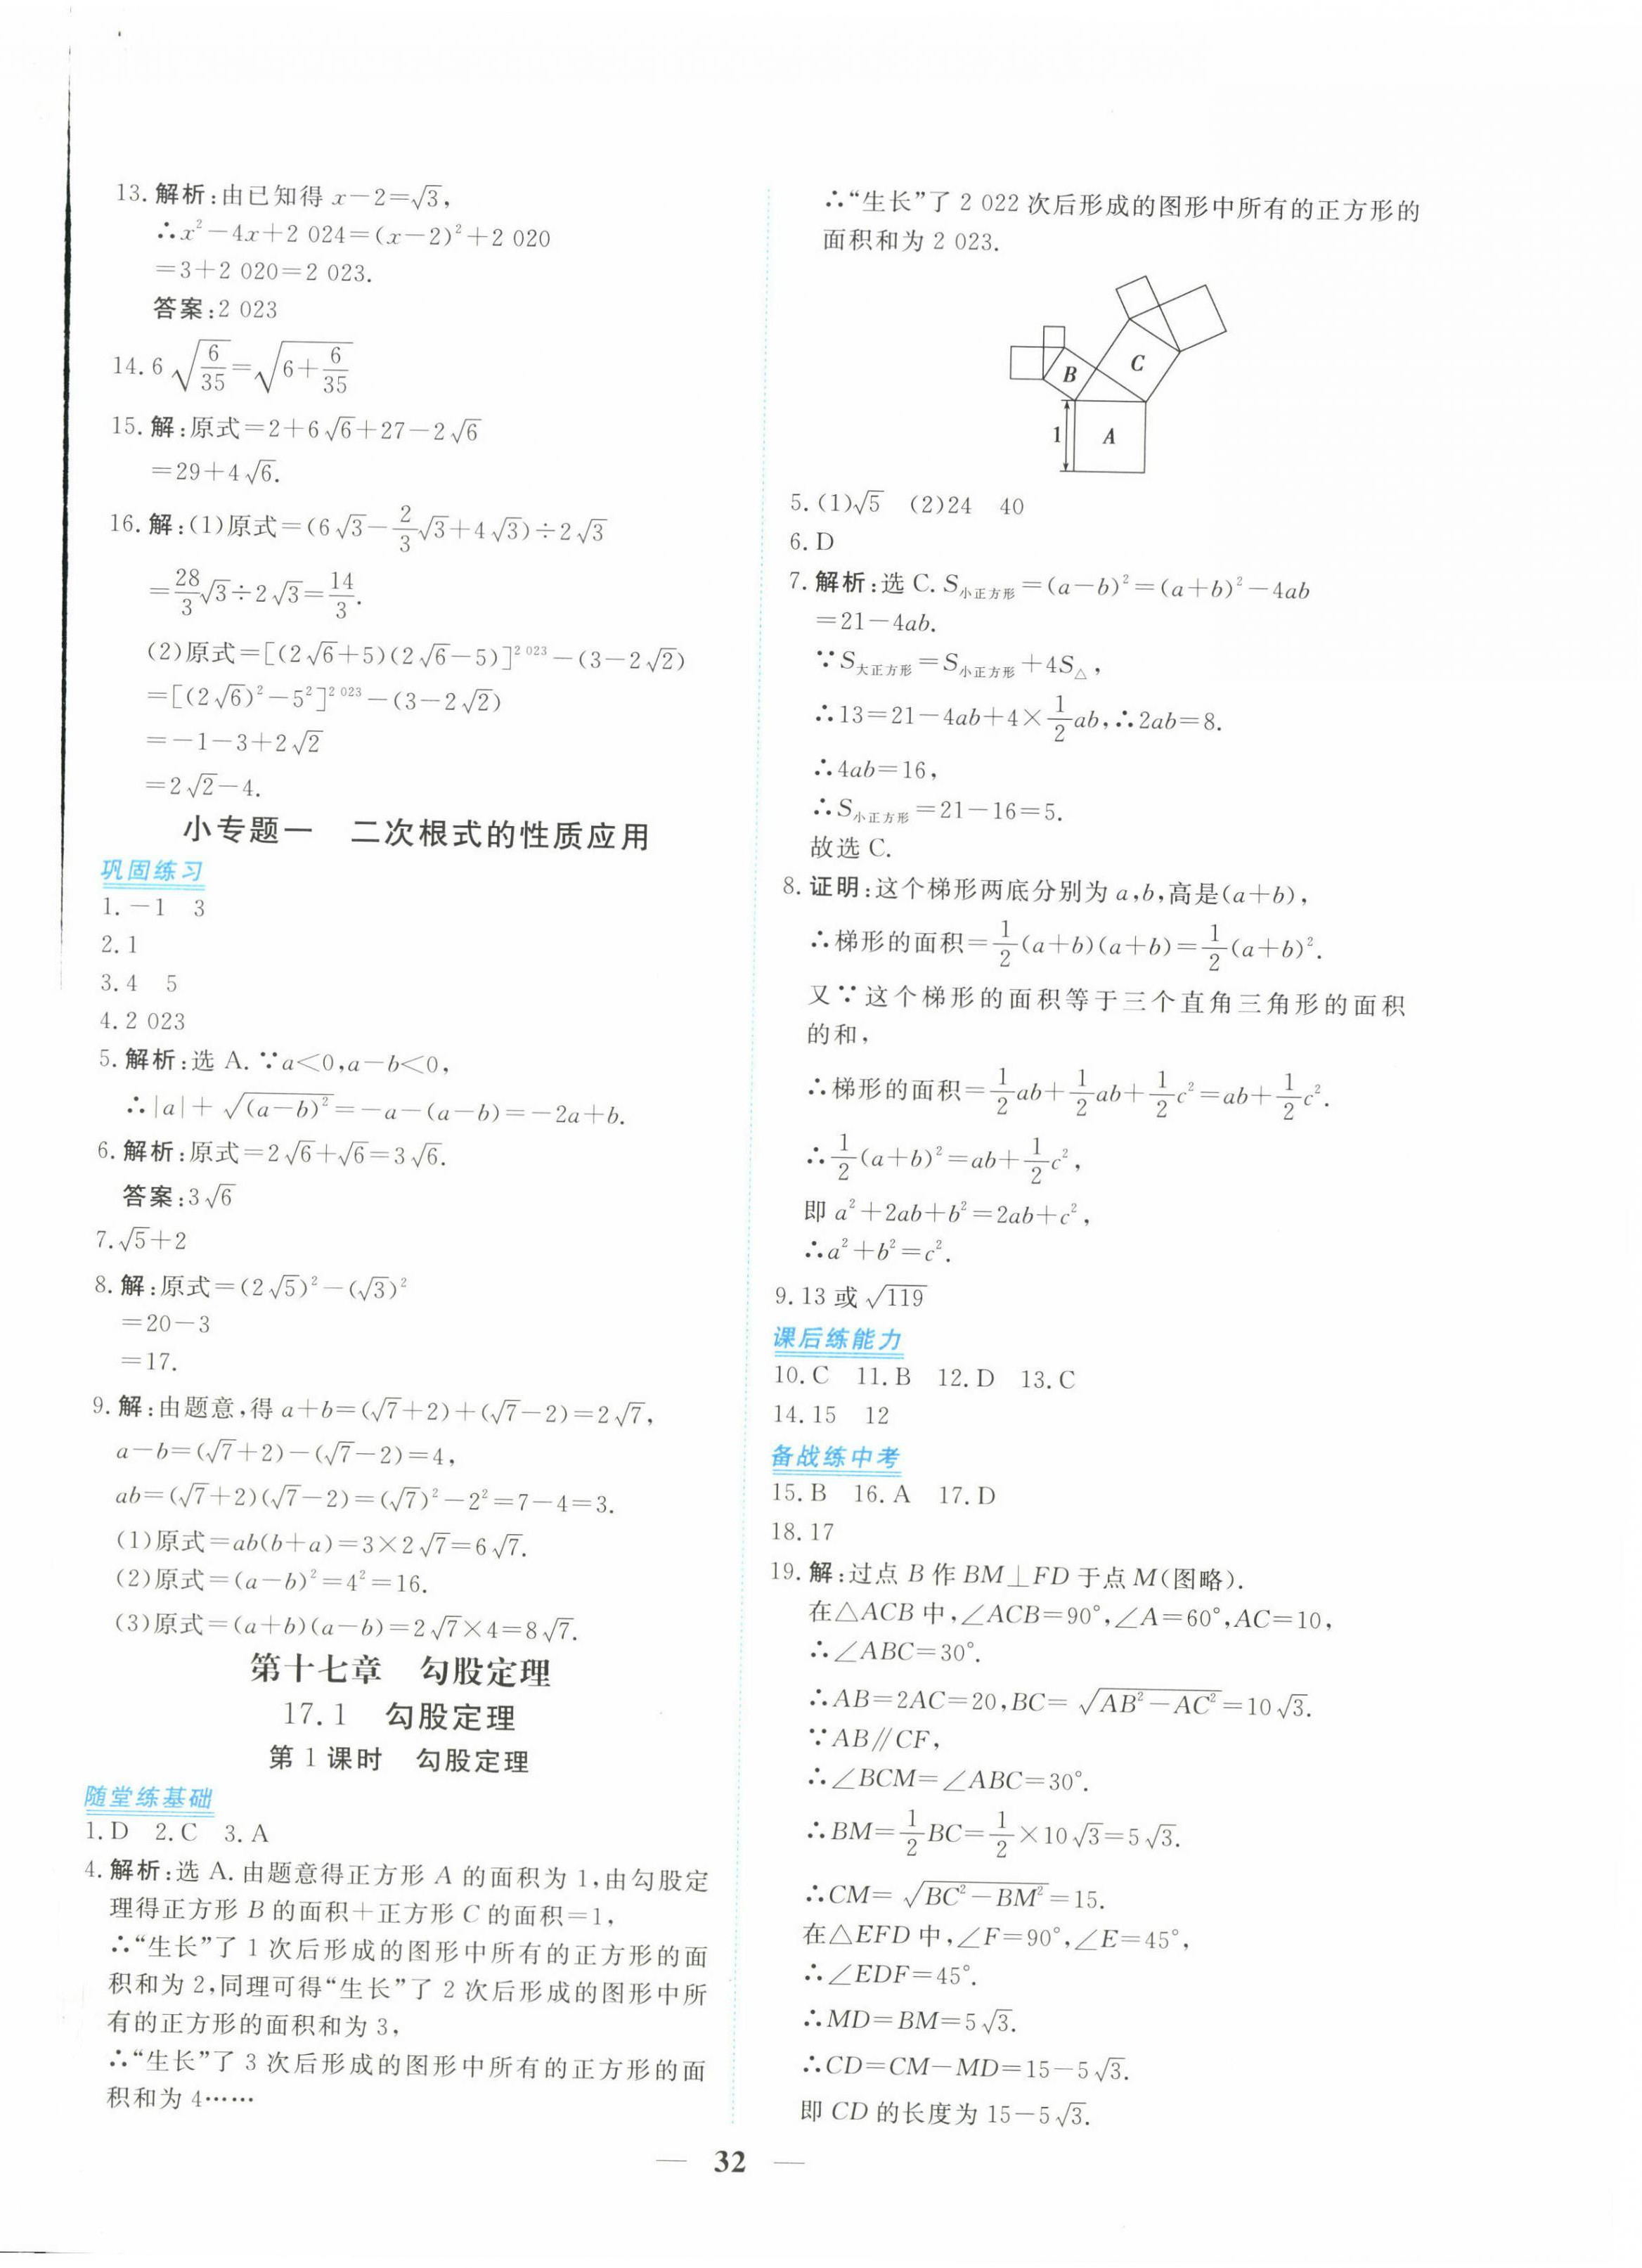 13. 解析:由已知得 x－2＝√3,
∴x²－4x＋2 024＝(x－2)²＋2 020
＝3＋2 020＝2 023.
答案:2 023
14. 6√(6/35)＝√(6＋6/35)
15. 解:原式＝2＋6√6＋27－2√6
＝29＋4√6.
16. 解:(1)原式＝(6√3－2/3√3＋4√3)÷2√3
＝28/3√3÷2√3＝14/3.
(2)原式＝[(2√6＋5)(2√6－5)]²⁰²³－(3－2√2)
＝[(2√6)²－5²]²⁰²³－(3－2√2)
＝－1－3＋2√2
＝2√2－4.
小专题一　二次根式的性质应用
巩固练习
1. －1　3
2. 1
3. 4　5
4. 2 023
5. 解析:选 A. ∵a<0,a－b<0,
∴|a|＋√(a－b)²＝－a－(a－b)＝－2a＋b.
6. 解析:原式＝2√6＋√6＝3√6.
答案:3√6
7. √5＋2
8. 解:原式＝(2√5)²－(√3)²
＝20－3
＝17.
9. 解:由题意,得 a＋b＝(√7＋2)＋(√7－2)＝2√7,
a－b＝(√7＋2)－(√7－2)＝4,
ab＝(√7＋2)(√7－2)＝(√7)²－2²＝7－4＝3.
(1)原式＝ab(b＋a)＝3×2√7＝6√7.
(2)原式＝(a－b)²＝4²＝16.
(3)原式＝(a＋b)(a－b)＝2√7×4＝8√7.
第十七章　勾股定理
17.1　勾股定理
第 1 课时　勾股定理
随堂练基础
1. D　2. C　3. A
4. 解析:选 A. 由题意得正方形 A 的面积为 1,由勾股定
理得正方形 B 的面积＋正方形 C 的面积＝1,
∴“生长”了 1 次后形成的图形中所有的正方形的面
积和为 2,同理可得“生长”了 2 次后形成的图形中所
有的正方形的面积和为 3,
∴“生长”了 3 次后形成的图形中所有的正方形的面
积和为 4……
∴“生长”了 2 022 次后形成的图形中所有的正方形的
面积和为 2 023.
B
C
1
A
5. (1)√5　(2)24　40
6. D
7. 解析:选 C. S小正方形＝(a－b)²＝(a＋b)²－4ab
＝21－4ab.
∵S大正方形＝S小正方形＋4S△,
∴13＝21－4ab＋4×1/2ab,∴2ab＝8.
∴4ab＝16,
∴S小正方形＝21－16＝5.
故选 C.
8. 证明:这个梯形两底分别为 a,b,高是(a＋b),
∴梯形的面积＝1/2(a＋b)(a＋b)＝1/2(a＋b)².
又∵这个梯形的面积等于三个直角三角形的面积
的和,
∴梯形的面积＝1/2ab＋1/2ab＋1/2c²＝ab＋1/2c².
∴1/2(a＋b)²＝ab＋1/2c²,
即 a²＋2ab＋b²＝2ab＋c²,
∴a²＋b²＝c².
9. 13 或 √119
课后练能力
10. C　11. B　12. D　13. C
14. 15　12
备战练中考
15. B　16. A　17. D
18. 17
19. 解:过点 B 作 BM⊥FD 于点 M(图略).
在△ACB 中,∠ACB＝90°,∠A＝60°,AC＝10,
∴∠ABC＝30°.
∴AB＝2AC＝20,BC＝√(AB²－AC²)＝10√3.
∵AB∥CF,
∴∠BCM＝∠ABC＝30°.
∴BM＝1/2BC＝1/2×10√3＝5√3.
∴CM＝√(BC²－BM²)＝15.
在△EFD 中,∠F＝90°,∠E＝45°,
∴∠EDF＝45°.
∴MD＝BM＝5√3.
∴CD＝CM－MD＝15－5√3.
即 CD 的长度为 15－5√3.
— 32 —